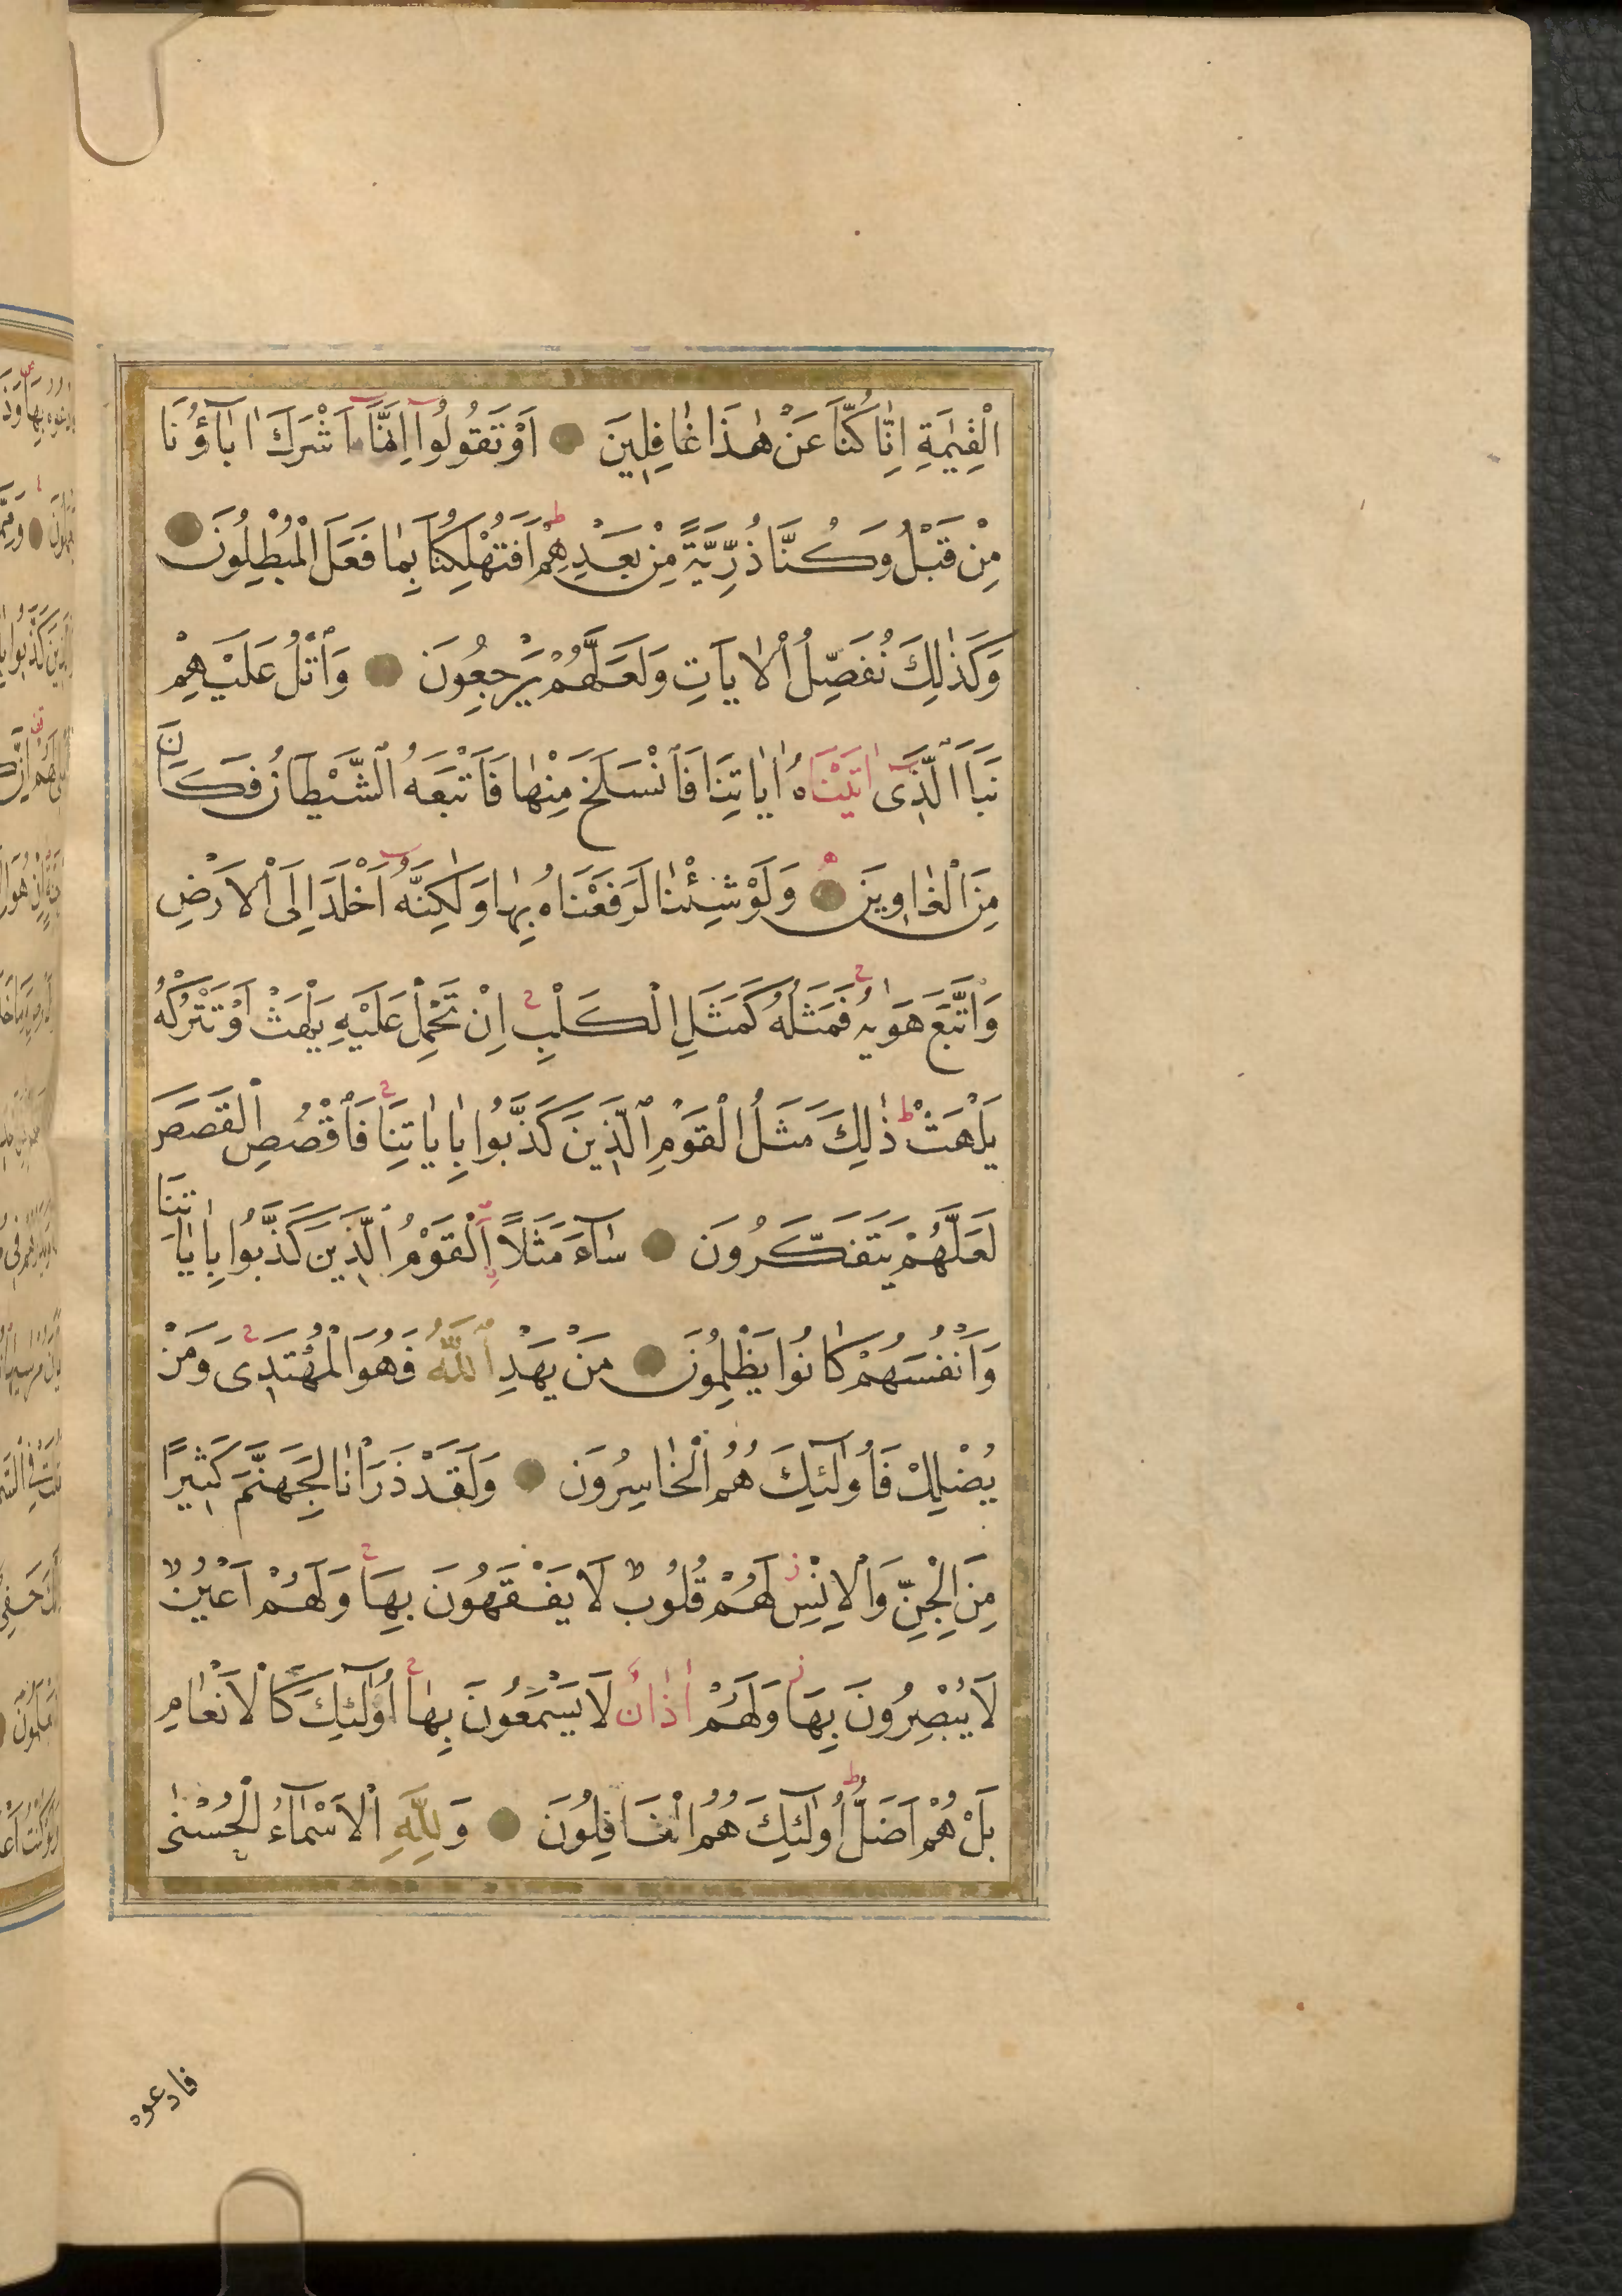 الْقِيٰمَةِ اِنَّا كُنَّا عَنْ هٰذَا غَافِلِينَ اَوْ تَقُولُوا اِنَّمَا اَشْرَكَ اٰبَآؤُنَا
مِنْ قَبْلُ وَكُنَّا ذُرِّيَّةً مِنْ بَعْدِهِمْ اَفَتُهْلِكُنَا بِمَا فَعَلَ الْمُبْطِلُونَ
وَكَذٰلِكَ نُفَصِّلُ الْاٰيَاتِ وَلَعَلَّهُمْ يَرْجِعُونَ وَاتْلُ عَلَيْهِمْ
نَبَاَ الَّذِىٓ اٰتَيْنَاهُ اٰيَاتِنَا فَانْسَلَخَ مِنْهَا فَاَتْبَعَهُ الشَّيْطَانُ فَكَانَ
مِنَ الْغَاوِينَ وَلَوْ شِئْنَا لَرَفَعْنَاهُ بِهَا وَلٰكِنَّهُٓ اَخْلَدَ اِلَى الْاَرْضِ
وَاتَّبَعَ هَوٰيهُ فَمَثَلُهُ كَمَثَلِ الْكَلْبِ اِنْ تَحْمِلْ عَلَيْهِ يَلْهَثْ اَوْ تَتْرُكْهُ
يَلْهَثْ ذٰلِكَ مَثَلُ الْقَوْمِ الَّذِينَ كَذَّبُوا بِاٰيَاتِنَا فَاقْصُصِ الْقَصَصَ
لَعَلَّهُمْ يَتَفَكَّرُونَ سَآءَ مَثَلًا اَلْقَوْمُ الَّذِينَ كَذَّبُوا بِاٰيَاتِنَا
وَاَنْفُسَهُمْ كَانُوا يَظْلِمُونَ مَنْ يَهْدِ اللّٰهُ فَهُوَ الْمُهْتَدِى وَمَنْ
يُضْلِلْ فَاُولٰٓئِكَ هُمُ الْخَاسِرُونَ وَلَقَدْ ذَرَاْنَا لِجَهَنَّمَ كَثِيرًا
مِنَ الْجِنِّ وَالْاِنْسِ لَهُمْ قُلُوبٌ لَا يَفْقَهُونَ بِهَا وَلَهُمْ اَعْيُنٌ
لَا يُبْصِرُونَ بِهَا وَلَهُمْ اٰذَانٌ لَا يَسْمَعُونَ بِهَا اُولٰٓئِكَ كَالْاَنْعَامِ
بَلْ هُمْ اَضَلُّ اُولٰٓئِكَ هُمُ الْغَافِلُونَ وَلِلّٰهِ الْاَسْمَآءُ الْحُسْنٰى
فادعوه